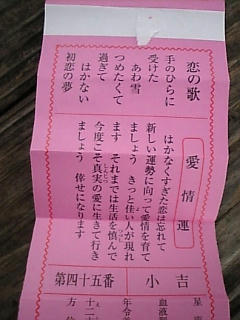 恋の歌
手のひらに
受けた
あわ雪
つめたくて
過ぎて
はかない
初恋の夢
愛情運
はかなくすぎた恋は忘れて
新しい運勢に向って愛情を育て
ましょう きっと佳い人が現れ
ます それまでは生活を慎んで
今度こそ真実の愛に生きて行き
ましょう 倖せになります
小吉
第四十五番
血液